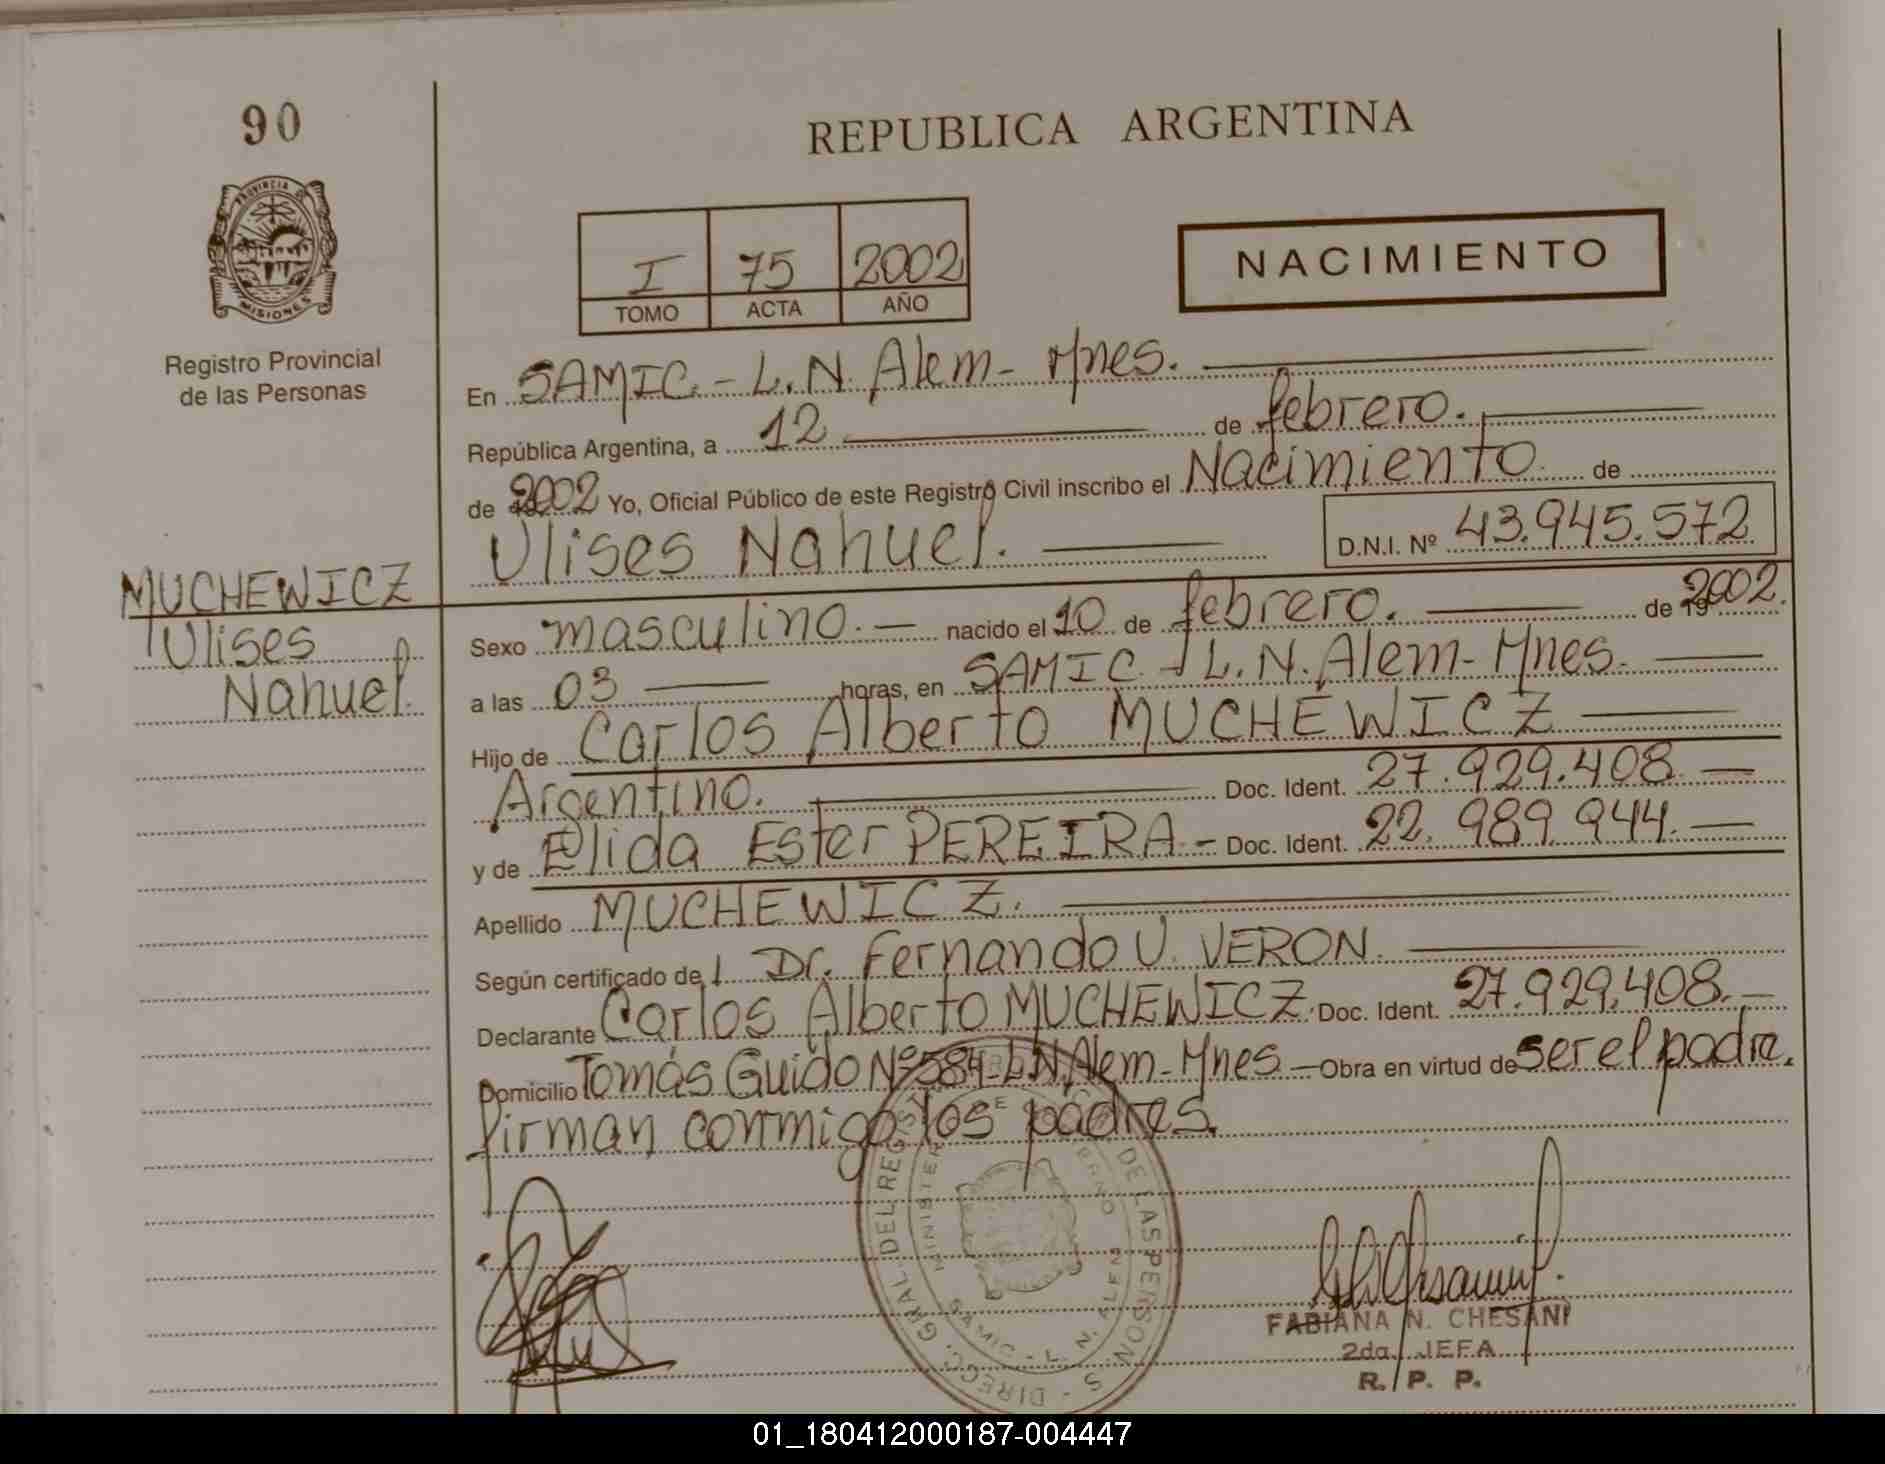 90
PROVINCIA DE
MISIONES
Registro Provincial
de las Personas
MUCHEWICZ
Ulises
Nahuel.
REPUBLICA ARGENTINA
I 75 2002
TOMO ACTA AÑO
NACIMIENTO
En SAMIC - L.N. Alem - Mnes.
República Argentina, a 12 de febrero.
de 2002 Yo, Oficial Público de este Registro Civil inscribo el Nacimiento de
Ulises Nahuel. D.N.I. Nº 43.945.572
Sexo masculino. - nacido el 10 de febrero. de 19 2002.
a las 03 horas, en SAMIC - L.N. Alem - Mnes.
Hijo de Carlos Alberto MUCHEWICZ
Argentino. Doc. Ident. 27.929.408
y de Elida Ester PEREIRA - Doc. Ident. 22.989.944.
Apellido MUCHEWICZ.
Según certificado de Dr. Fernando U. VERON.
Declarante Carlos Alberto MUCHEWICZ. Doc. Ident. 27.929.408.
Domicilio Tomás Guido Nº 584 - L.N. Alem - Mnes - Obra en virtud de ser el padre.
firman conmigo los padres.
DIRECC. GRAL. DEL REGISTRO DE LAS PERSONAS
SAMIC - L. N. ALEM
FABIANA N. CHESANI
2da. JEFA
R. P. P.
01_180412000187-004447